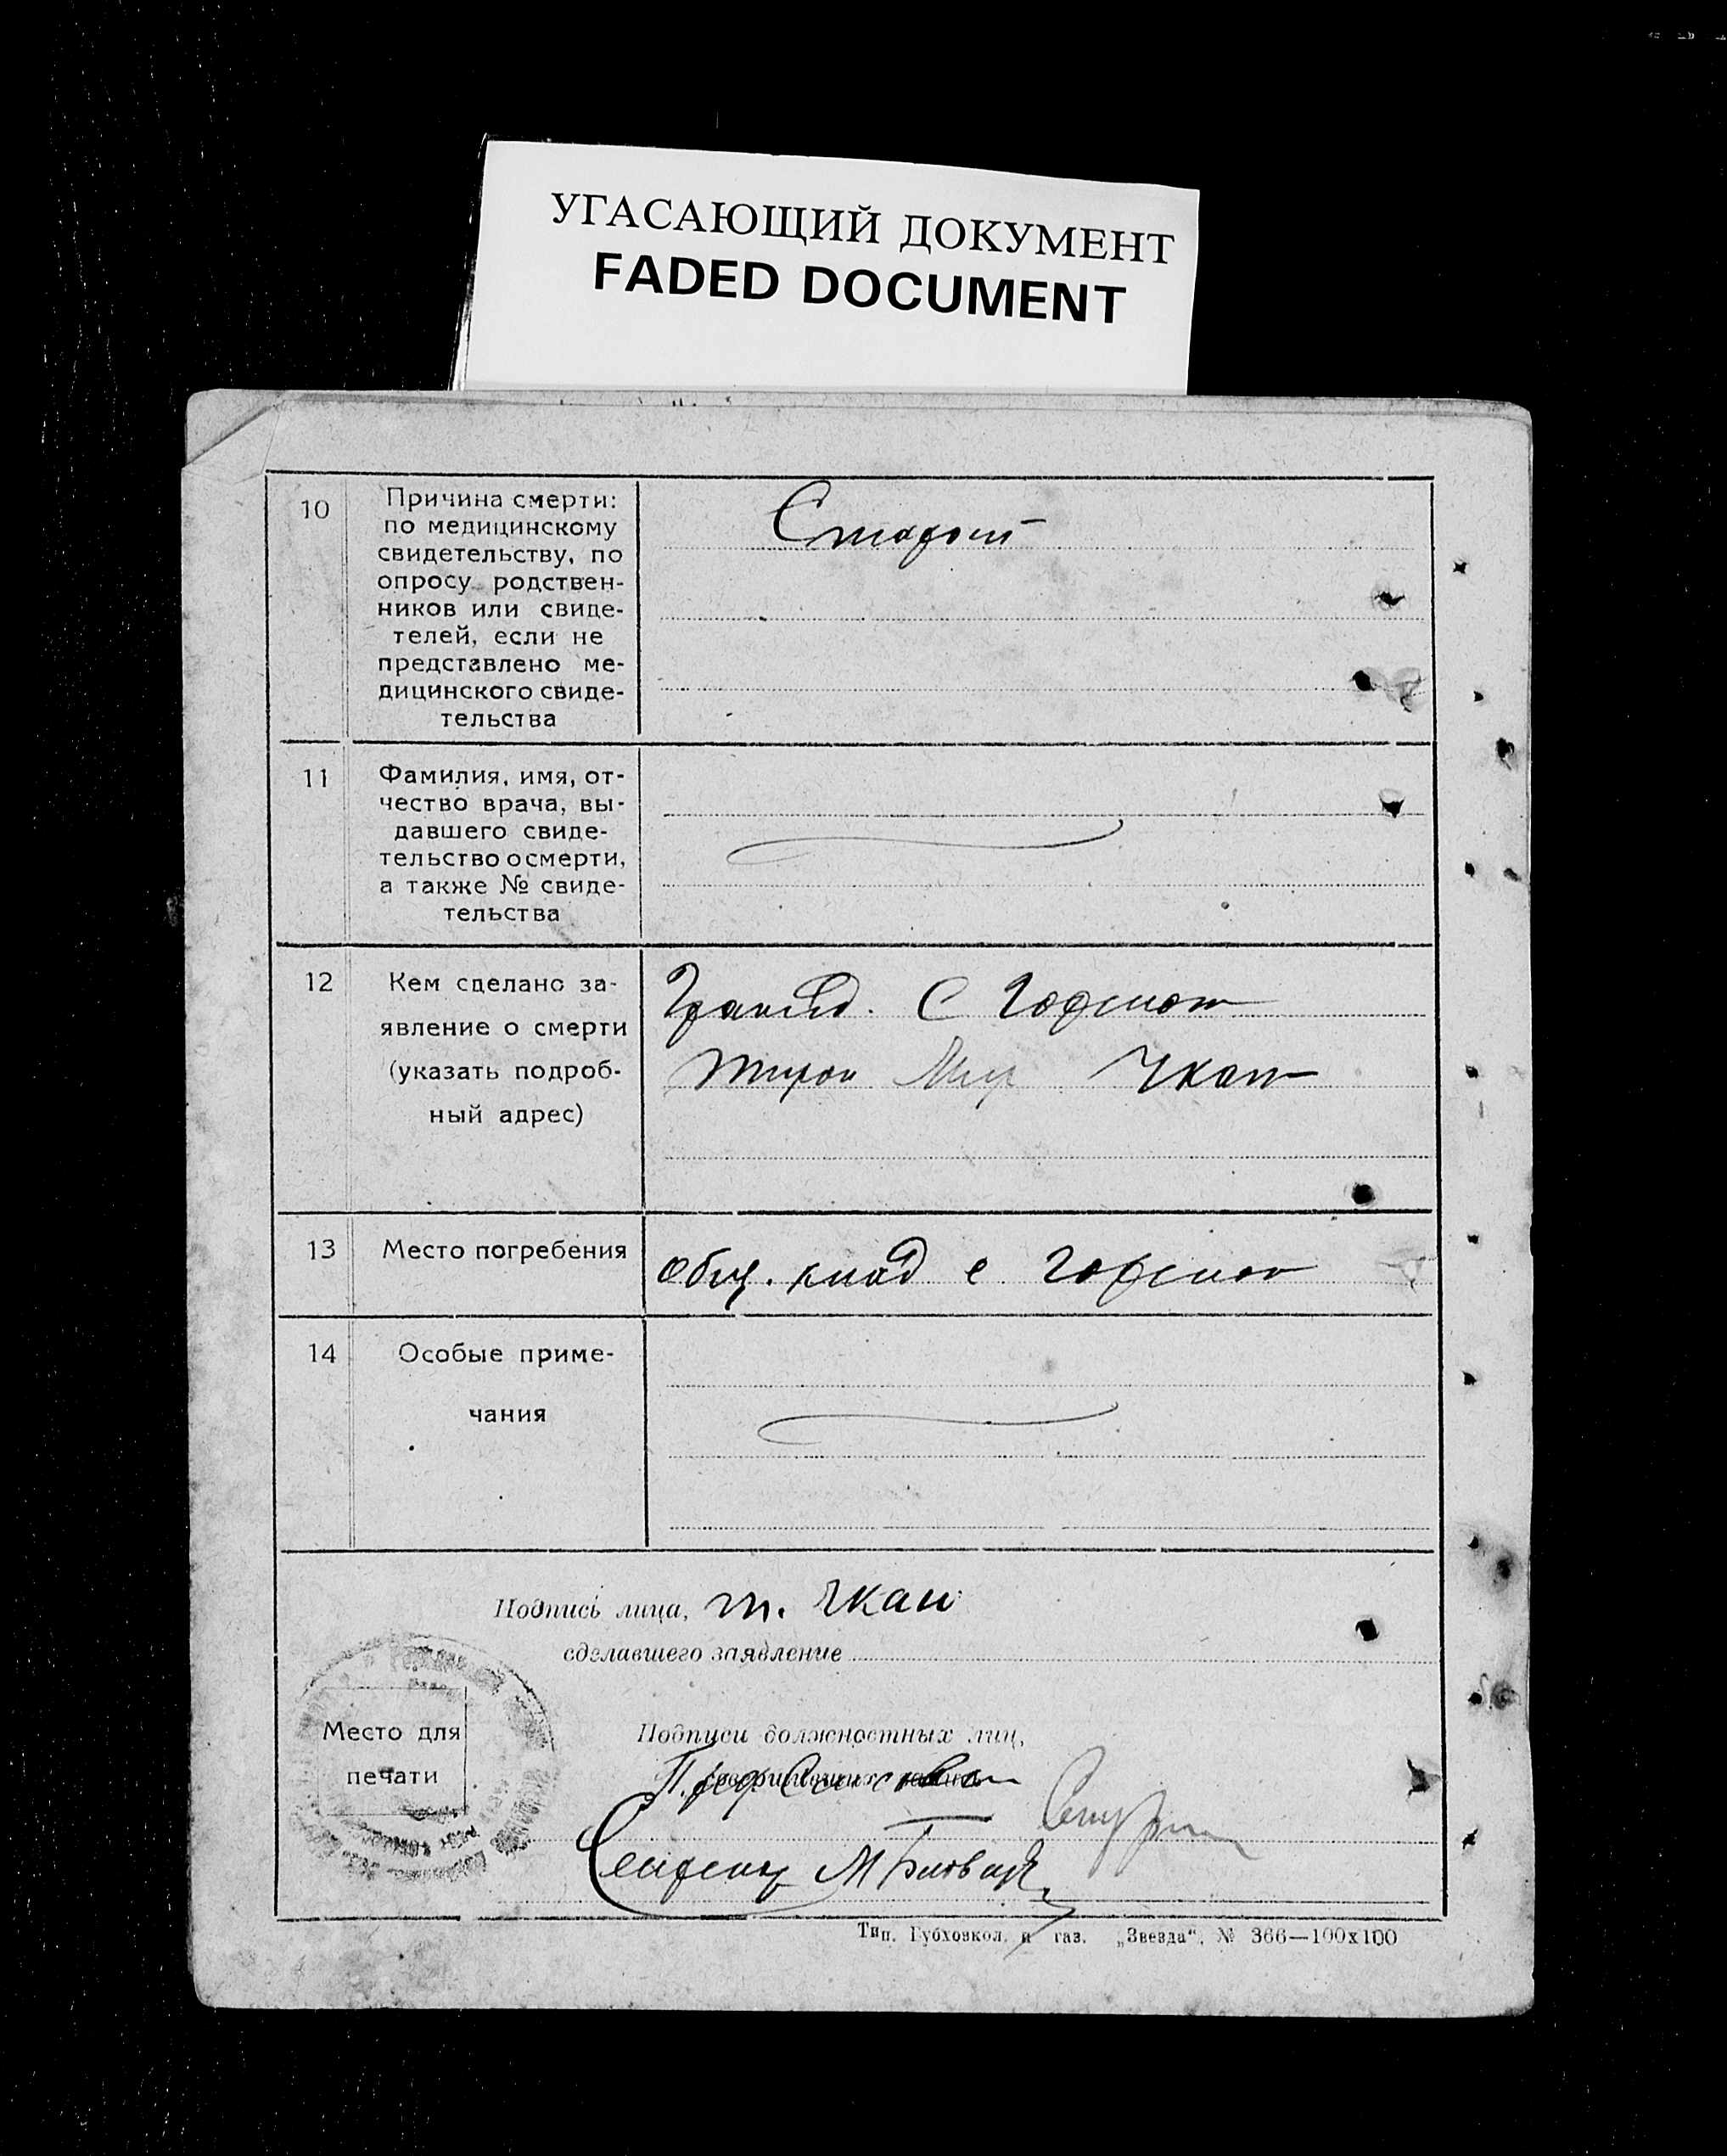 УГАСАЮЩИЙ ДОКУМЕНТ
FADED DOCUMENT
10
Причина смерти:
по медицинскому
свидетельству, по
опросу родствен-
ников или свиде-
телей, если не
представлено ме-
дицинского свиде-
тельства
Старост
11
Фамилия, имя, от-
чество врача, вы-
давшего свиде-
тельство о смерти,
а также № свиде-
тельства
12
Кем сделано за-
явление о смерти
(указать подроб-
ный адрес)
С
Чкан
13
Место погребения
Общ. клад с
14
Особые приме-
чания
Подпись лица, т. Чкан
сделавшего заявление
Место для
печати
Подписи должностных лиц,
Тип. Губховкол. и газ. „Звезда“, № 366—100х100